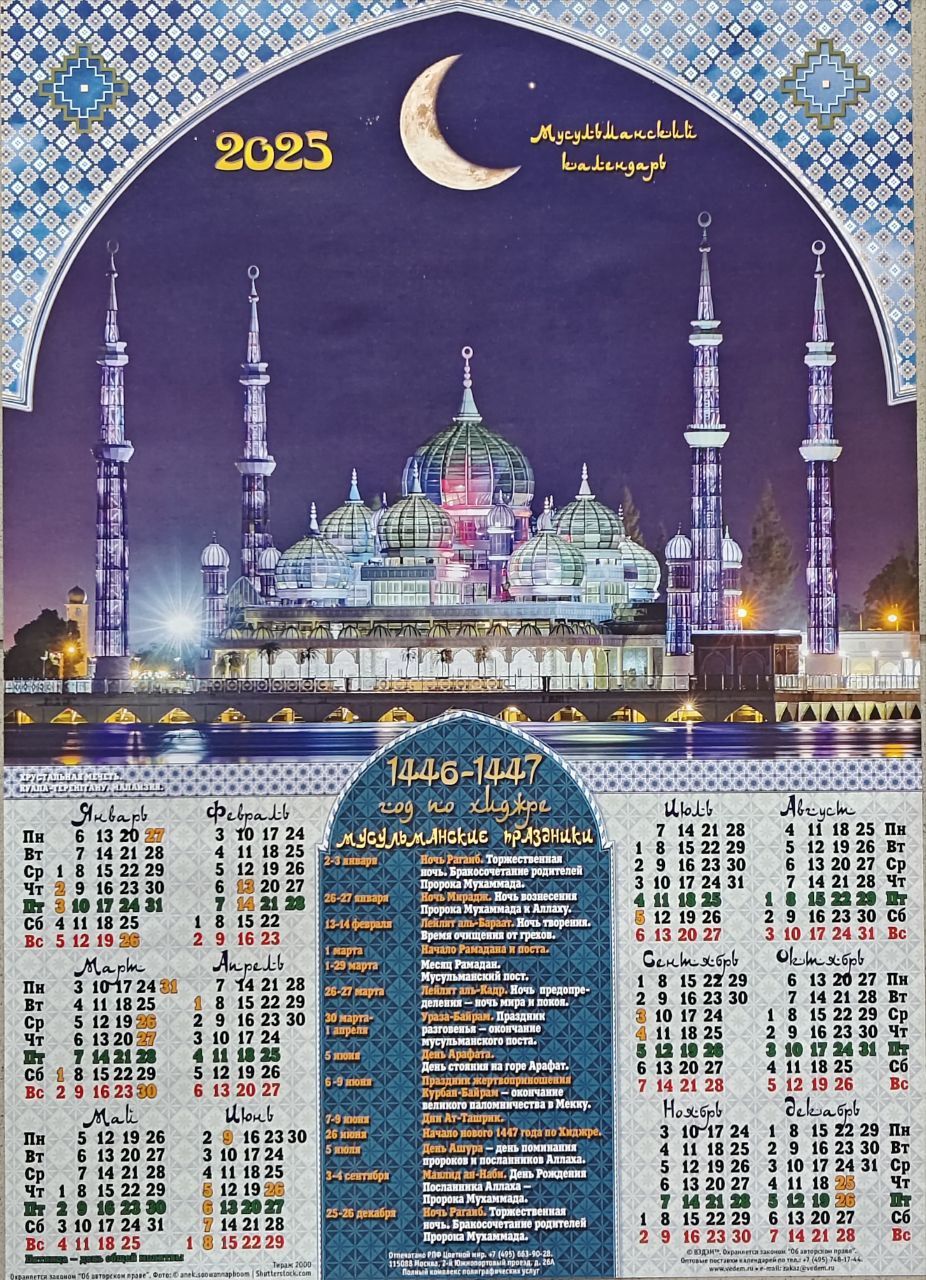 2025
Мусульманский
календарь
ХРУСТАЛЬНАЯ МЕЧЕТЬ.
КУАЛА-ТЕРЕНГГАНУ. МАЛАЙЗИЯ.
1446-1447
год по хиджре
мусульманские праздники
2-3 января Ночь Рагаиб. Торжественная
ночь. Бракосочетание родителей
Пророка Мухаммада.
26-27 января Ночь Мирадж. Ночь вознесения
Пророка Мухаммада к Аллаху.
13-14 февраля Лейлят аль-Бараат. Ночь творения.
Время очищения от грехов.
1 марта Начало Рамадана и поста.
1-29 марта Месяц Рамадан.
Мусульманский пост.
26-27 марта Лейлят аль-Кадр. Ночь предопре-
деления – ночь мира и покоя.
30 марта- Ураза-Байрам. Праздник
1 апреля разговенья – окончание
мусульманского поста.
5 июня День Арафата.
День стояния на горе Арафат.
6-9 июня Праздник жертвоприношения
Курбан-Байрам – окончание
великого паломничества в Мекку.
7-9 июня Дни Ат-Ташрик.
26 июня Начало нового 1447 года по Хиджре.
5 июля День Ашура – день поминания
пророков и посланников Аллаха.
3-4 сентября Мавлид ан-Наби. День Рождения
Посланника Аллаха –
Пророка Мухаммада.
25-26 декабря Ночь Рагаиб. Торжественная
ночь. Бракосочетание родителей
Пророка Мухаммада.
Январь Февраль
Пн 6 13 20 27 3 10 17 24
Вт 7 14 21 28 4 11 18 25
Ср 1 8 15 22 29 5 12 19 26
Чт 2 9 16 23 30 6 13 20 27
Пт 3 10 17 24 31 7 14 21 28
Сб 4 11 18 25 1 8 15 22
Вс 5 12 19 26 2 9 16 23
Март Апрель
Пн 3 10 17 24 31 7 14 21 28
Вт 4 11 18 25 1 8 15 22 29
Ср 5 12 19 26 2 9 16 23 30
Чт 6 13 20 27 3 10 17 24
Пт 7 14 21 28 4 11 18 25
Сб 1 8 15 22 29 5 12 19 26
Вс 2 9 16 23 30 6 13 20 27
Май Июнь
Пн 5 12 19 26 2 9 16 23 30
Вт 6 13 20 27 3 10 17 24
Ср 7 14 21 28 4 11 18 25
Чт 1 8 15 22 29 5 12 19 26
Пт 2 9 16 23 30 6 13 20 27
Сб 3 10 17 24 31 7 14 21 28
Вс 4 11 18 25 1 8 15 22 29
Пятница – день общей молитвы
Июль Август
7 14 21 28 4 11 18 25 Пн
1 8 15 22 29 5 12 19 26 Вт
2 9 16 23 30 6 13 20 27 Ср
3 10 17 24 31 7 14 21 28 Чт
4 11 18 25 1 8 15 22 29 Пт
5 12 19 26 2 9 16 23 30 Сб
6 13 20 27 3 10 17 24 31 Вс
Сентябрь Октябрь
1 8 15 22 29 6 13 20 27 Пн
2 9 16 23 30 7 14 21 28 Вт
3 10 17 24 1 8 15 22 29 Ср
4 11 18 25 2 9 16 23 30 Чт
5 12 19 26 3 10 17 24 31 Пт
6 13 20 27 4 11 18 25 Сб
7 14 21 28 5 12 19 26 Вс
Ноябрь Декабрь
3 10 17 24 1 8 15 22 29 Пн
4 11 18 25 2 9 16 23 30 Вт
5 12 19 26 3 10 17 24 31 Ср
6 13 20 27 4 11 18 25 Чт
7 14 21 28 5 12 19 26 Пт
1 8 15 22 29 6 13 20 27 Сб
2 9 16 23 30 7 14 21 28 Вс
Тираж 2000
Охраняется законом "Об авторском праве". Фото: © anek.soowannaphoom | Shutterstock.com
Отпечатано РПФ Цветной мир. +7 (495) 663-90-28.
115088 Москва, 2-й Южнопортовый проезд, д. 26А
Полный комплекс полиграфических услуг
© ВЭДЭМ™. Охраняется законом "Об авторском праве".
Оптовые поставки календарей по тел.: +7 (495) 748-17-44.
www.vedem.ru • e-mail: zakaz@vedem.ru